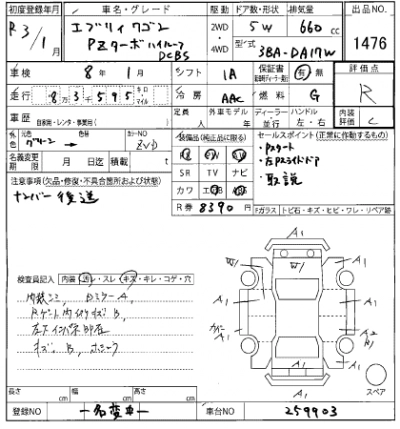 初度登録年月 車名・グレード 駆動 ドア数・形状 排気量 出品NO
R3/1月 エブリイワゴン PZターボハイルーフ DCBS 2WD・4WD 5W 660cc 1476
型式 3BA-DA17W
車検 8年1月 シフト IA 保証書 有 無 評価点
走行 8万3595 キロ マイル 冷房 AAC 燃料 G R
車歴 自家用・レンタ・事業用( ) 定員 人 外車モデル 年 ディーラー 並行 ハンドル 左・右 内装評価 C
色 元色 グリーン → カラーNO ZVD 装備品(純正品に限る) セールスポイント(正常に作動するもの)
名義変更期限 月 日迄 積載 t ・Pスタート
注意事項(欠品・修復・不具合箇所および状態) SR TV ナビ ・左Pスライドドア
ナンバー後送 カワ エアB ・取説
R券 8390円 Fガラス トビ石・キズ・ヒビ・ワレ・リペア跡
検査員記入 内装 汚レ・スレ・キズ・キレ・コゲ・穴
A1
W1 W1 A1
内装シミ、Dミラー A、
A1 A1
A1 A2
A1
キズ、B、
A1
スペア
長さ cm 幅 cm 高さ cm
登録NO 一名変車一 車台NO 259903